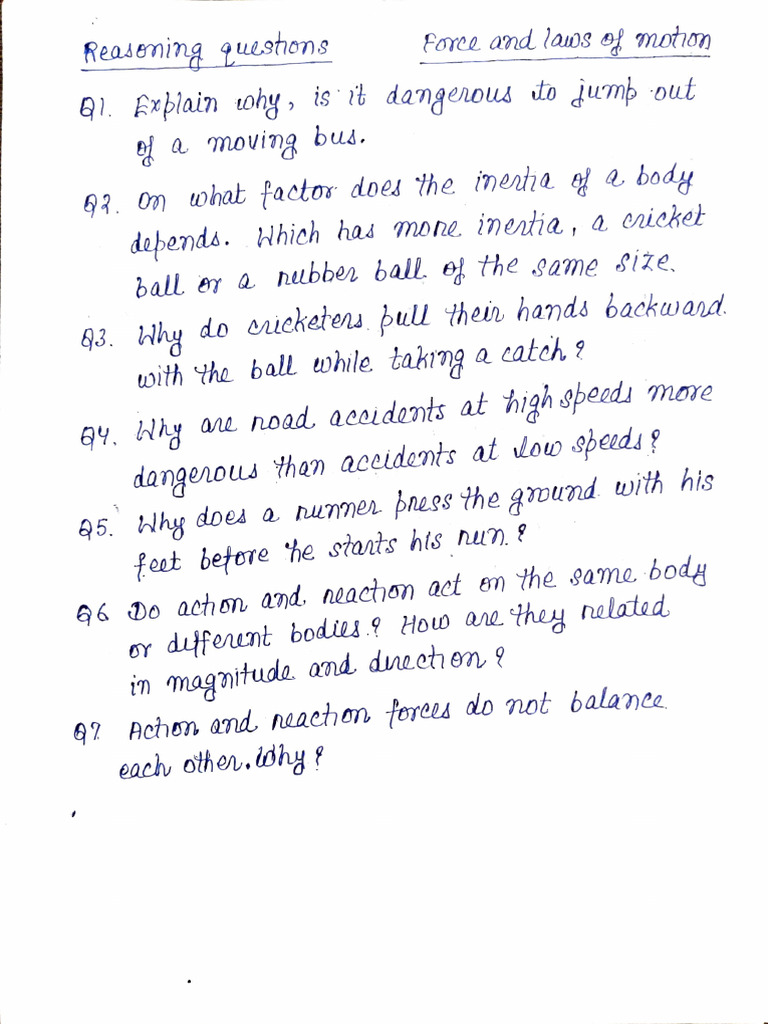 Reasoning questions Force and laws of motion
Q1. Explain why, is it dangerous to jump out
of a moving bus.
Q2. On what factor does the inertia of a body
depends. Which has more inertia, a cricket
ball or a rubber ball of the same size.
Q3. Why do cricketers pull their hands backward
with the ball while taking a catch?
Q4. Why are road accidents at high speeds more
dangerous than accidents at low speeds?
Q5. Why does a runner press the ground with his
feet before he starts his run?
Q6 Do action and reaction act on the same body
or different bodies? How are they related
in magnitude and direction?
Q7. Action and reaction forces do not balance
each other. Why?